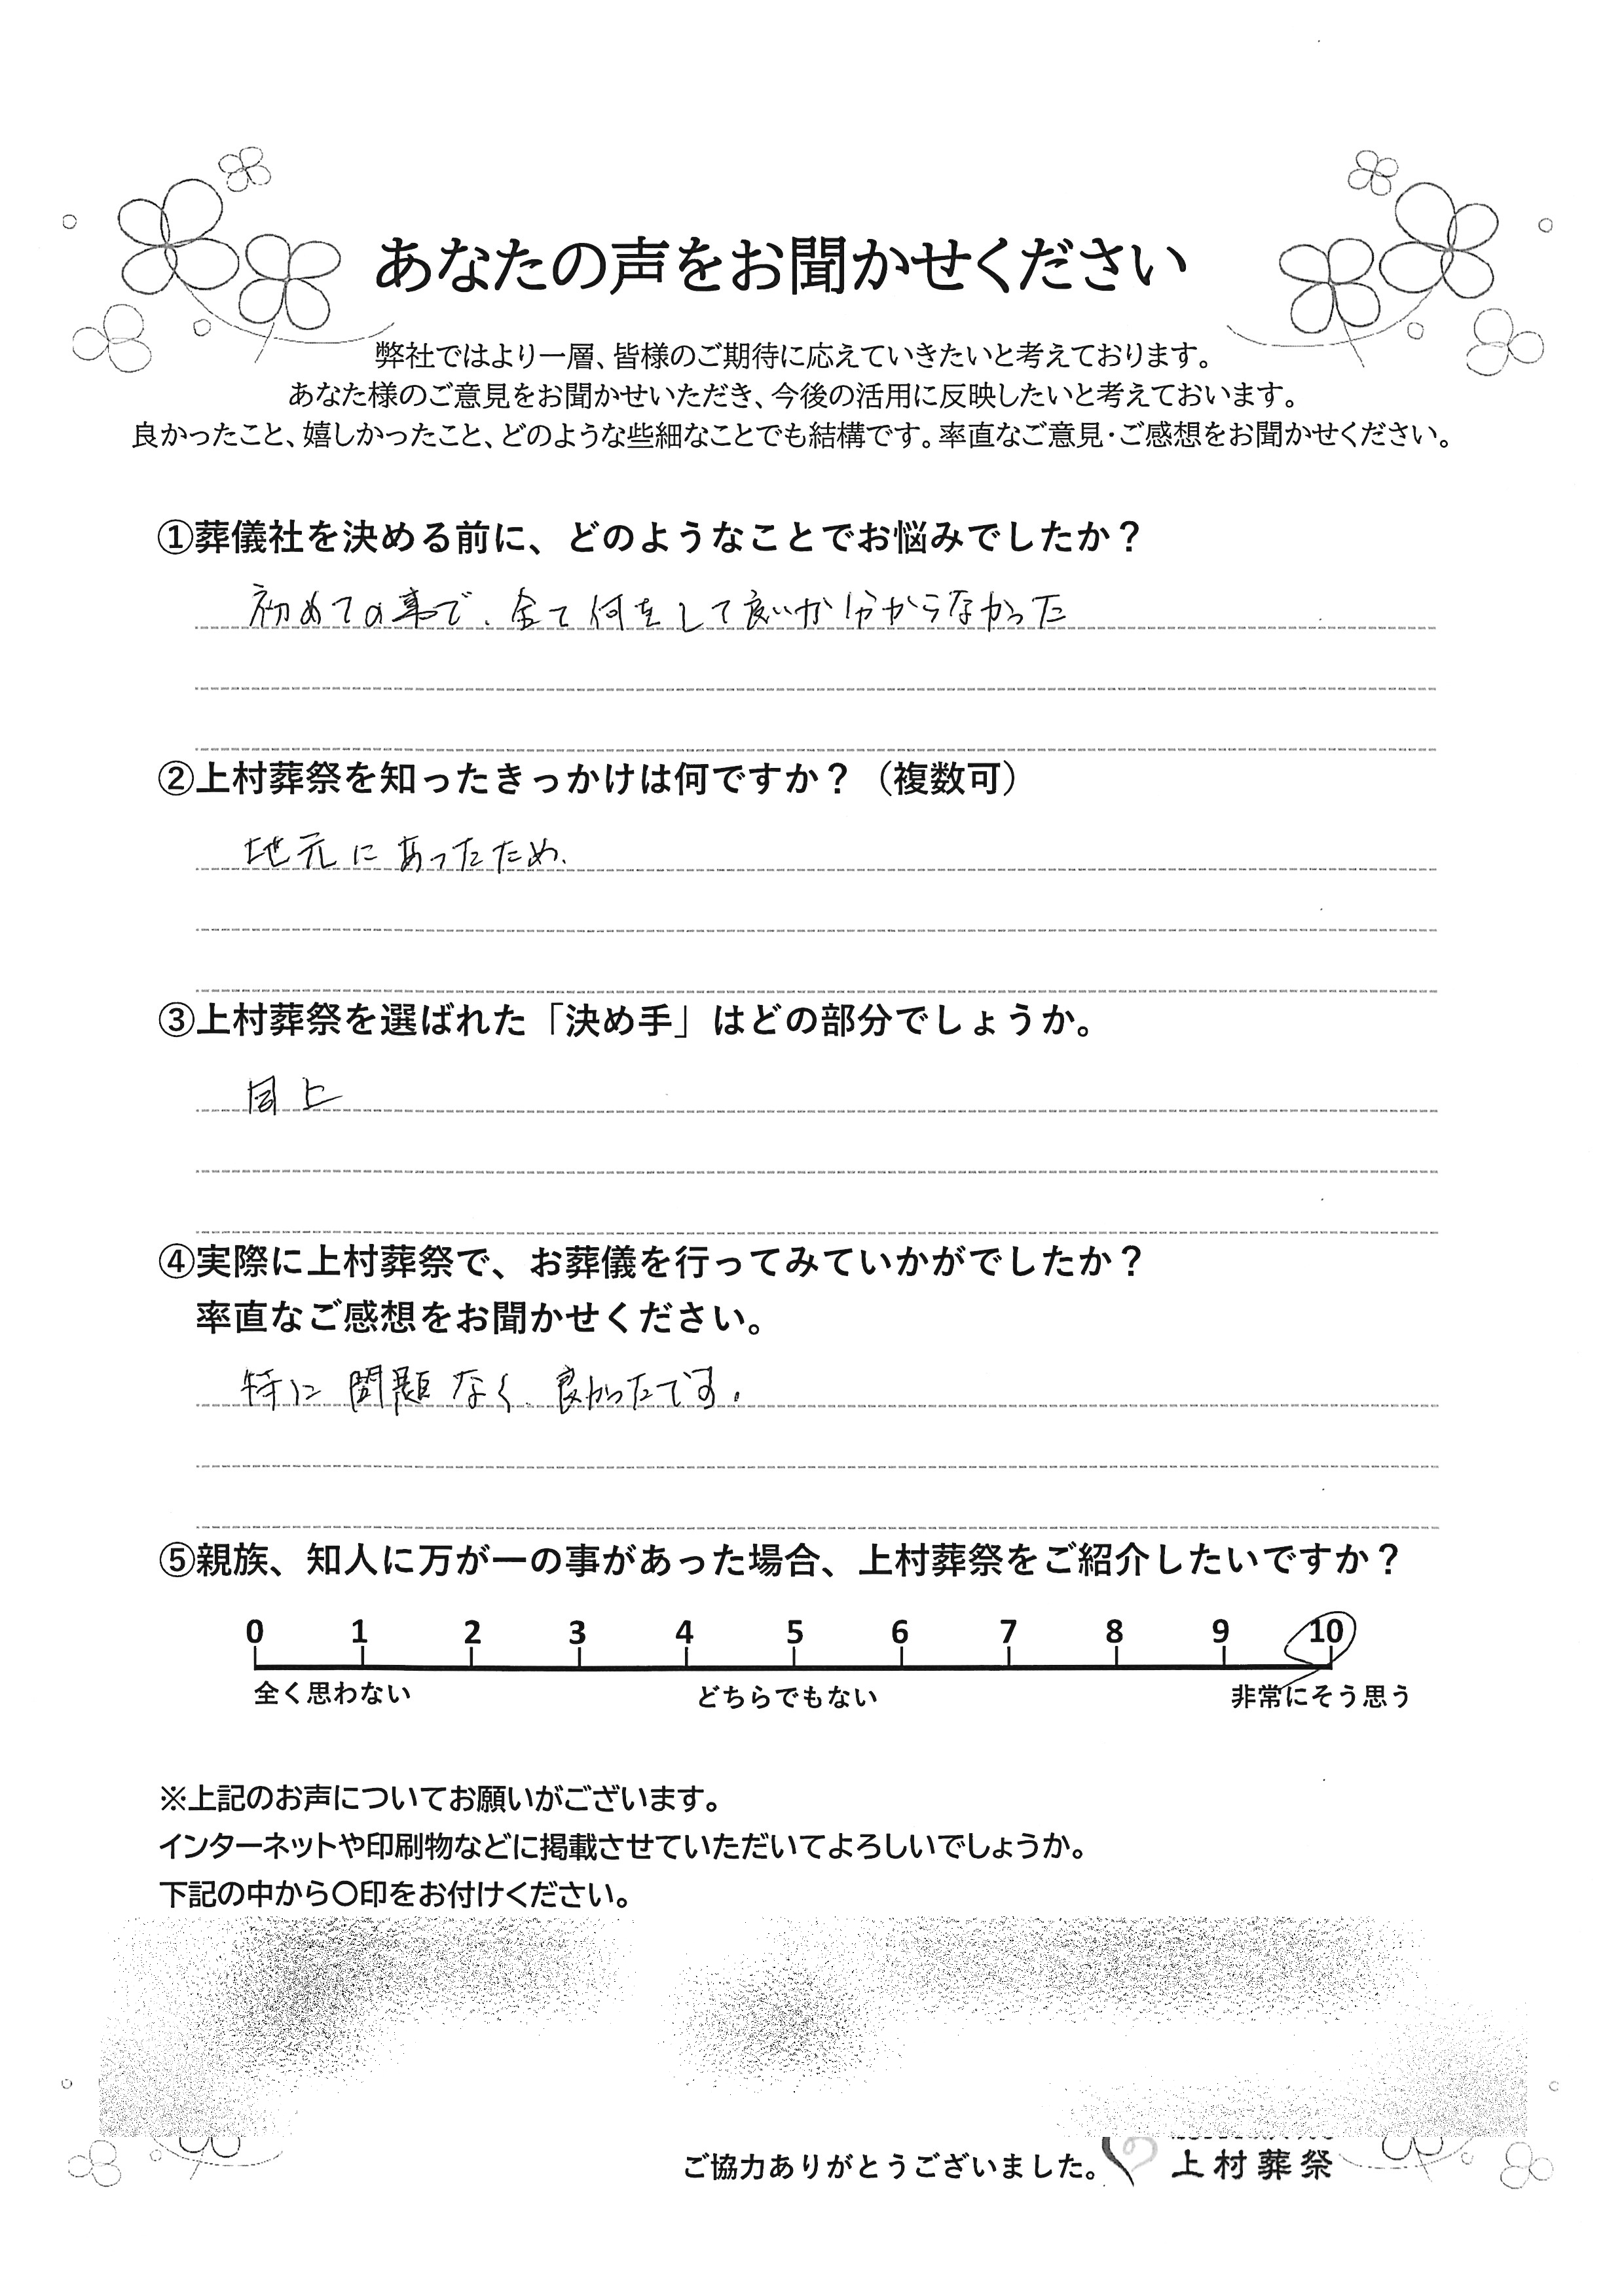 あなたの声をお聞かせください
弊社ではより一層、皆様のご期待に応えていきたいと考えております。
あなた様のご意見をお聞かせいただき、今後の活用に反映したいと考えておいます。
良かったこと、嬉しかったこと、どのような些細なことでも結構です。率直なご意見・ご感想をお聞かせください。
①葬儀社を決める前に、どのようなことでお悩みでしたか？
初めての事で、全て何をして良いか分からなかった
②上村葬祭を知ったきっかけは何ですか？（複数可）
地元にあったため、
③上村葬祭を選ばれた「決め手」はどの部分でしょうか。
同上
④実際に上村葬祭で、お葬儀を行ってみていかがでしたか？
率直なご感想をお聞かせください。
特に問題なく、良かったです。
⑤親族、知人に万が一の事があった場合、上村葬祭をご紹介したいですか？
0 1 2 3 4 5 6 7 8 9 10
全く思わない どちらでもない 非常にそう思う
※上記のお声についてお願いがございます。
インターネットや印刷物などに掲載させていただいてよろしいでしょうか。
下記の中から〇印をお付けください。
ご協力ありがとうございました。 上村葬祭